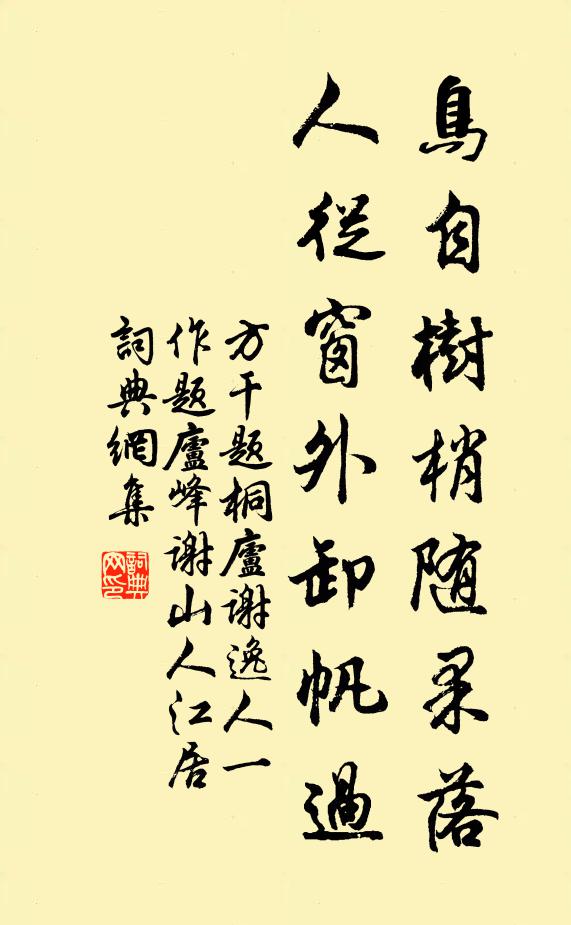 鳥自樹梢隨果落
人從窗外卸帆過
方干題桐廬謝逸人一
作題廬峰謝山人江居
詞典網集
詞典網印